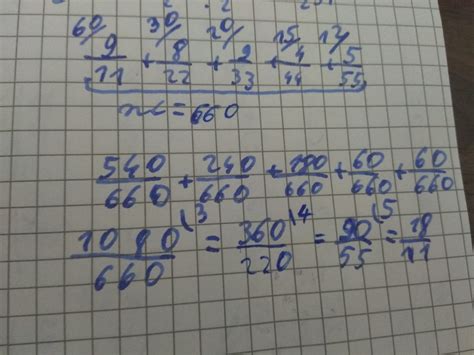 60/ 30/ 20/ 15/ 12/
9/11 + 8/22 + 2/33 + 4/44 + 5/55
nc = 660
540/660 + 240/660 + 180/660 + 60/660 + 60/660
1080/660 (3 = 360/220 (4 = 90/55 (5 = 18/11